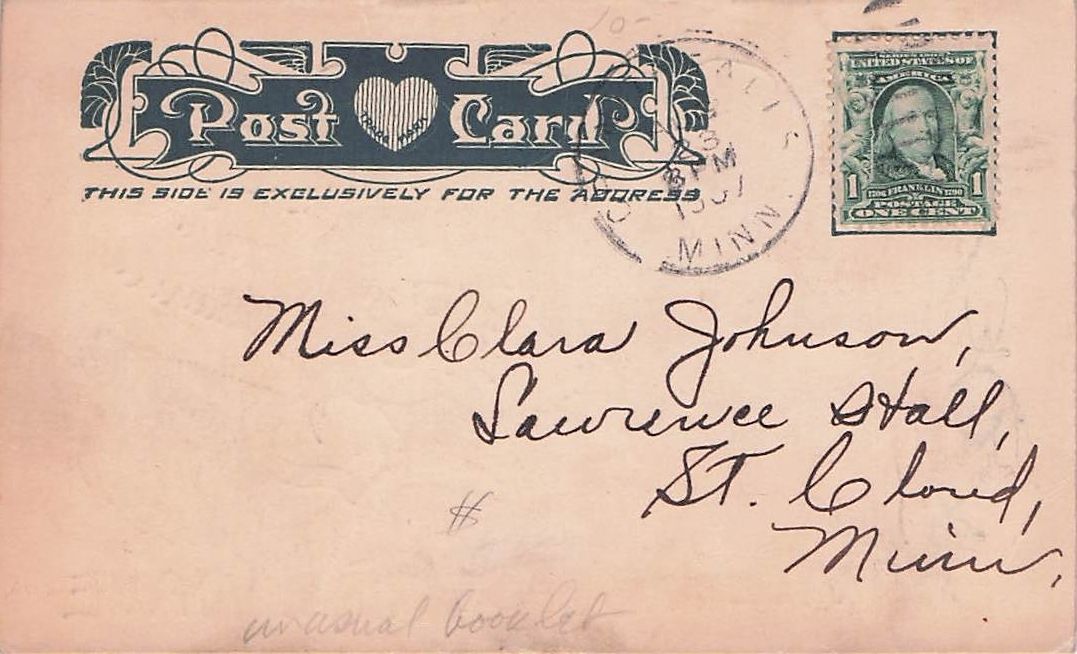 Post Card
TRADE MARK
THIS SIDE IS EXCLUSIVELY FOR THE ADDRESS
8 PM
1907
MINN.
UNITED STATES OF
AMERICA
1706 FRANKLIN 1790
1 POSTAGE 1
ONE CENT
Miss Clara Johnson,
Lawrence Hall,
St. Cloud,
Minn.
#
unusual booklet